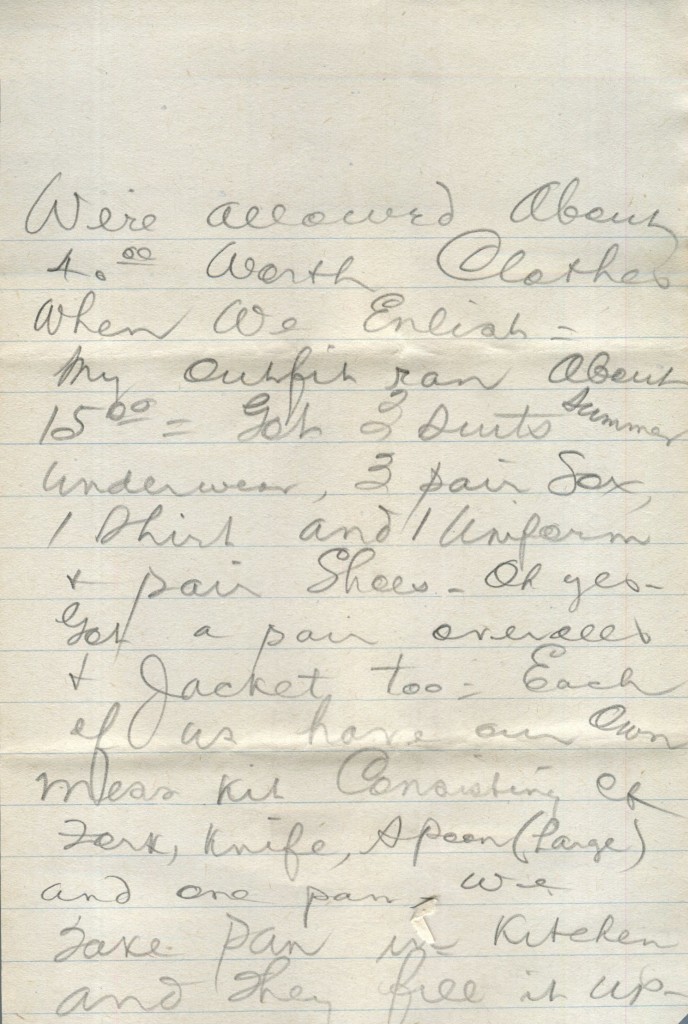 We're allowed About
40.00 Worth Clothes
When We Enlist =
My outfit ran About
15 00 = Got 2 suits Summer
underwear, 3 pair Sox,
1 Shirt and 1 Uniform
+ pair Shoes - Oh yes -
Got a pair overalls
+ Jacket too = Each
of us have our Own
mess kit Consisting of
Fork, Knife, Spoon (Large)
and one pan, We
take pan in Kitchen
and they fill it up -